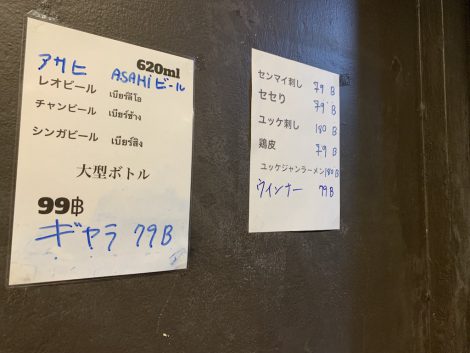 620ml
アサヒ ASAHiビール
レオビール เบียร์ลีโอ
チャンビール เบียร์ช้าง
シンガビール เบียร์สิง
大型ボトル
99฿
ギャラ 79B
センマイ刺し 79 B
セセり 79 B
ユッケ刺し 180 B
鶏皮 79 B
ユッケジャンラーメン 180 B
ウインナー 79B